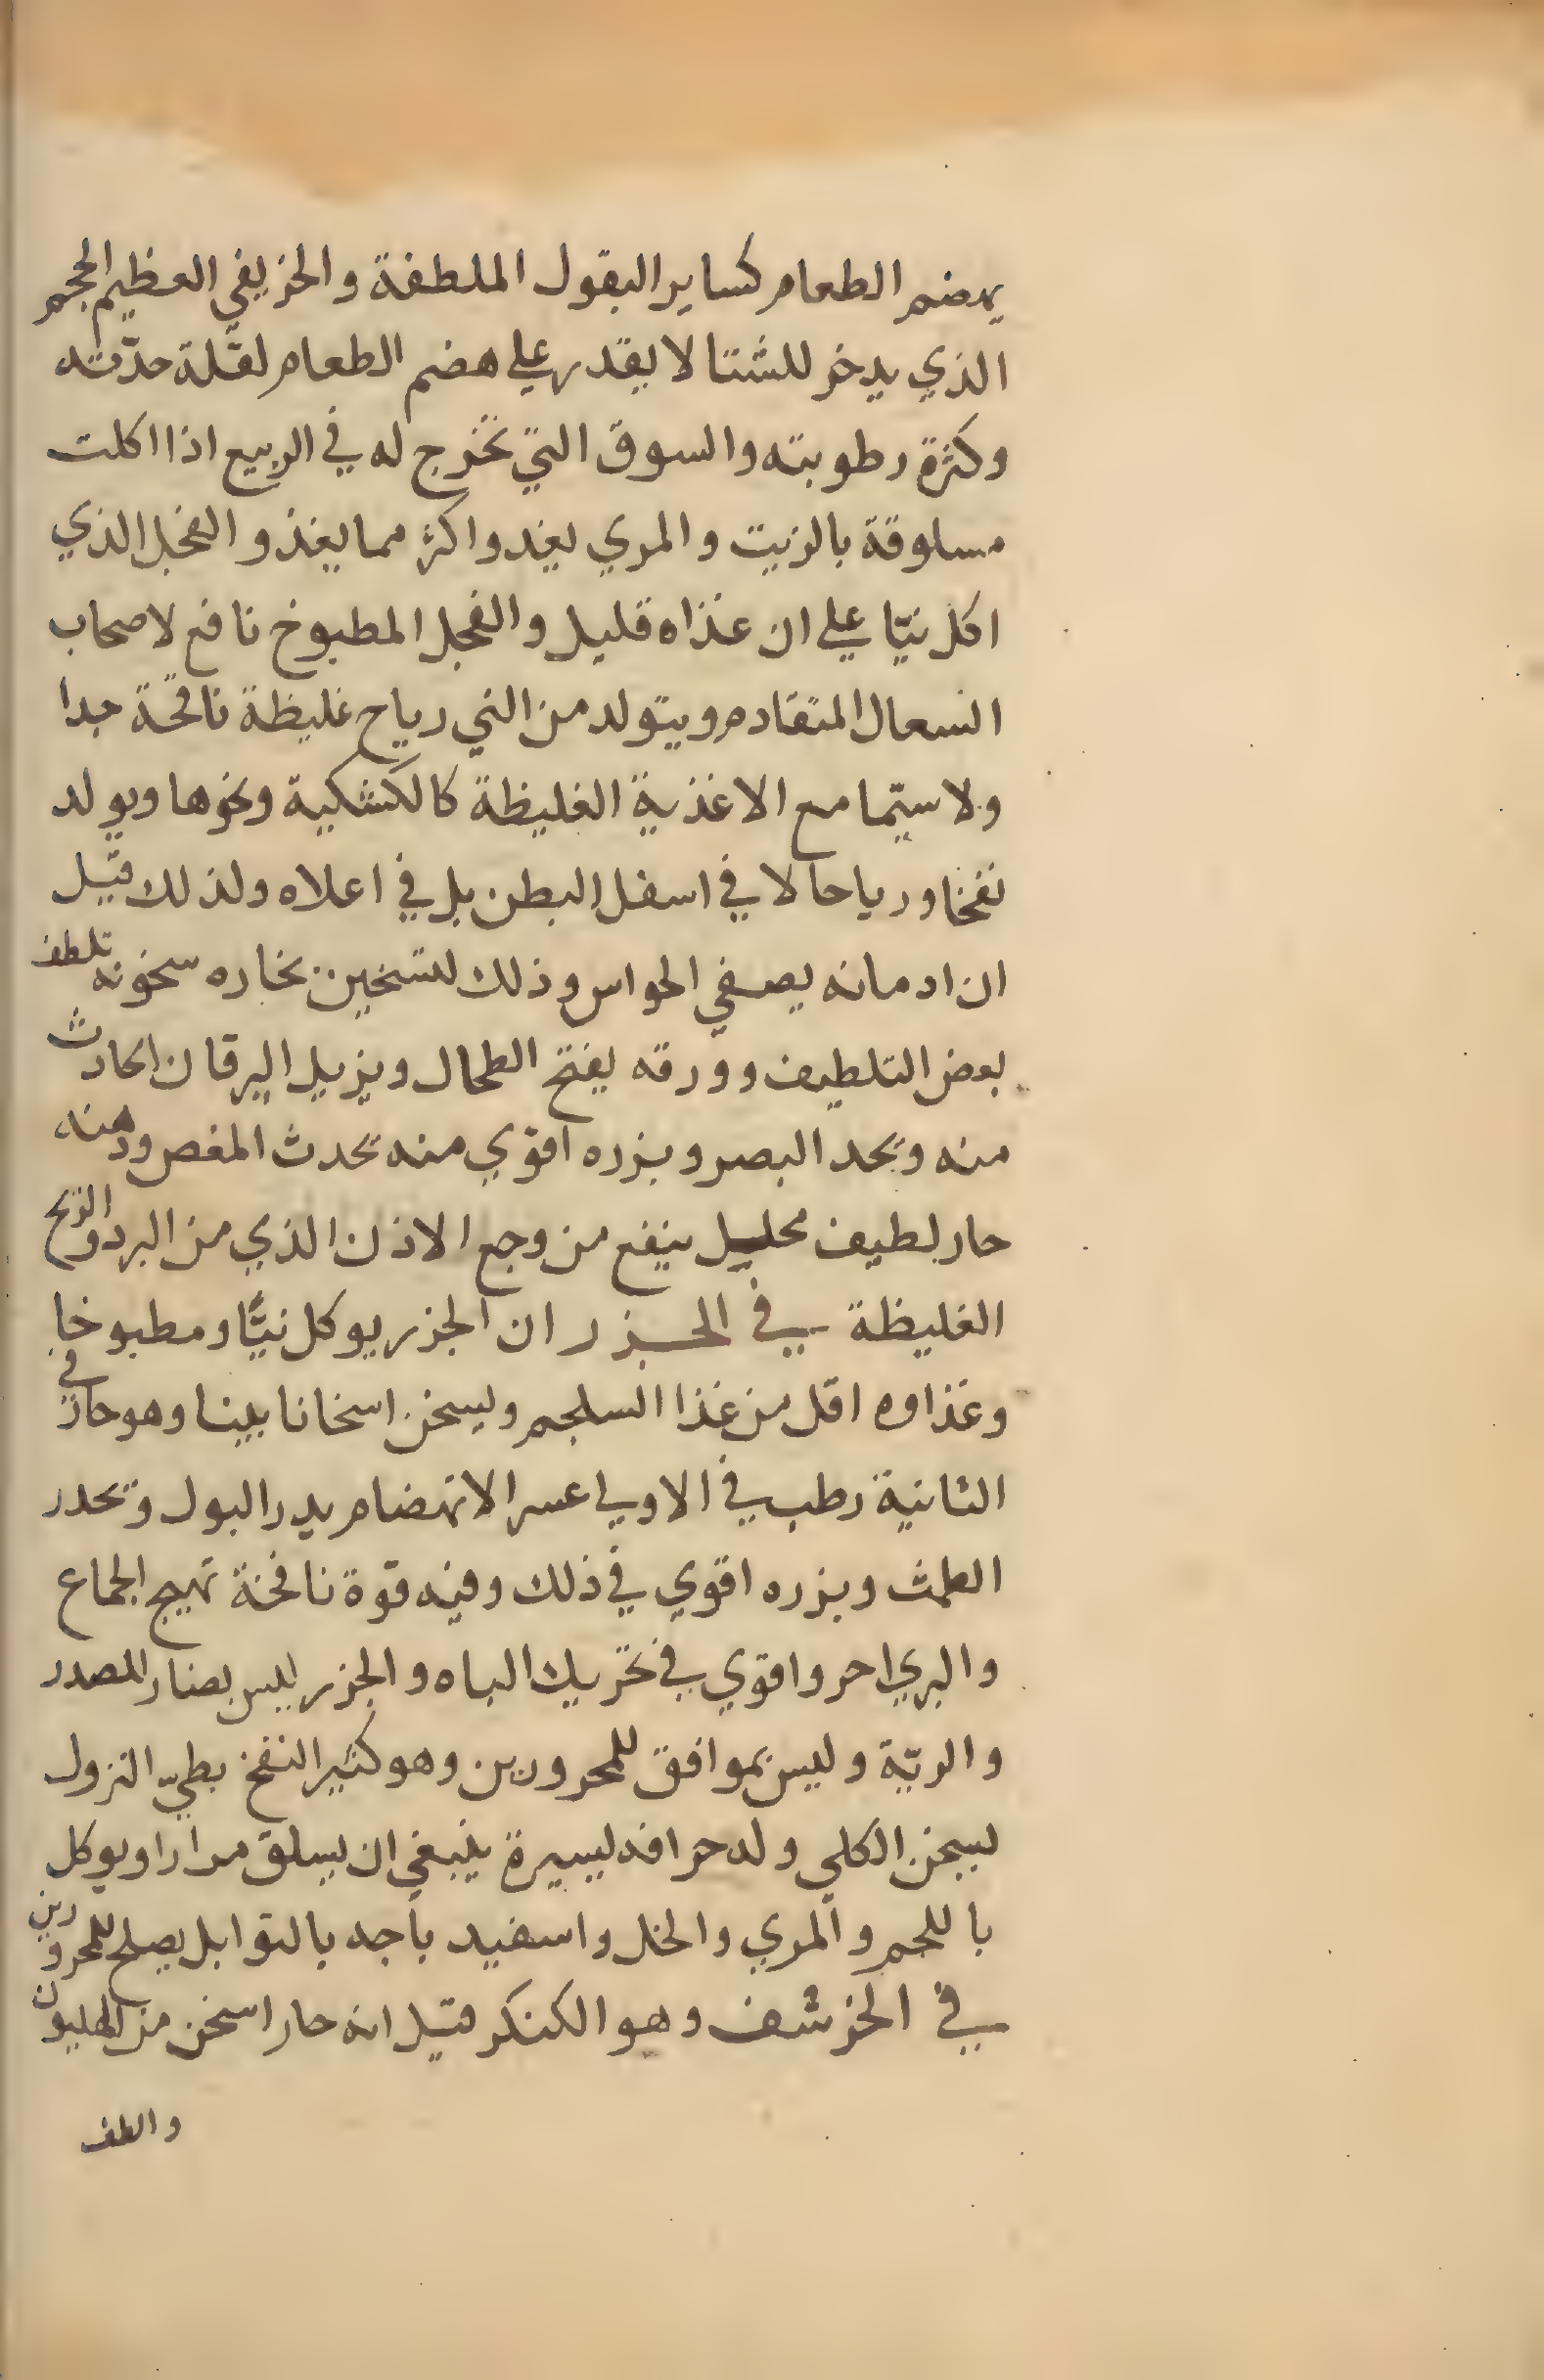 يهضم الطعام كساير البقول الملطفة والخريفي العظيم الحجم
الذي يدخر للشتا لا يقدر علي هضم الطعام لقلّة حدّته
وكثرة رطوبته والسوق التي تخرج له في الربيع اذا اكلت
مسلوقة بالزيت والمري يغدوا اكثر مما يغذوا الفجل الذي
اكل نيّا علي ان غذاه قليل والفجل المطبوخ نافع لاصحاب
السعال المتقادم ويتولد من الني رياح غليظة نافخة جدا
ولا سيّما مع الاغذية الغليظة كالكشكية ونحوها ويولد
نفخا ورياحا لا في اسفل البطن بل في اعلاه ولذلك قيل
ان ادمانه يصفي الحواس وذلك لتسخين بخاره سخونه تلطف
بعض التلطيف وورقه يفتح الطحال ويزيل اليرقان الحادث
منه ويحد البصر وبزره اقوي منه يحدث المغص ودهنه
حار لطيف محليل ينفع من وجع الاذن الذي من البرد والريح
الغليظة في الجزر ان الجزر يوكل نيًّا ومطبوخا
وغذاوه اقل من غذا السلجم ويسخن اسخانا بينا وهو حار في
الثانية رطب في الاولي عسر الانهضام يدر البول ويحدر
الطمث وبزره اقوي في ذلك وفيه قوة نافخة تهيج الجماع
والبري احر واقوي في تحريك الباه والجزر ليس بضار للصدر
والريّة وليس بموافق للمحرورين وهو كثير النفخ بطيّ النزول
يسخن الكلي وله حرافه يسيرة ينبغي ان يسلق مرارا ويوكل
باللحم والمري والخل واسفيد باجه بالتوابل يصلح للمحرورين
في الخرشف وهو الكنكر قيل انه حار اسخن من الهليون
والطف